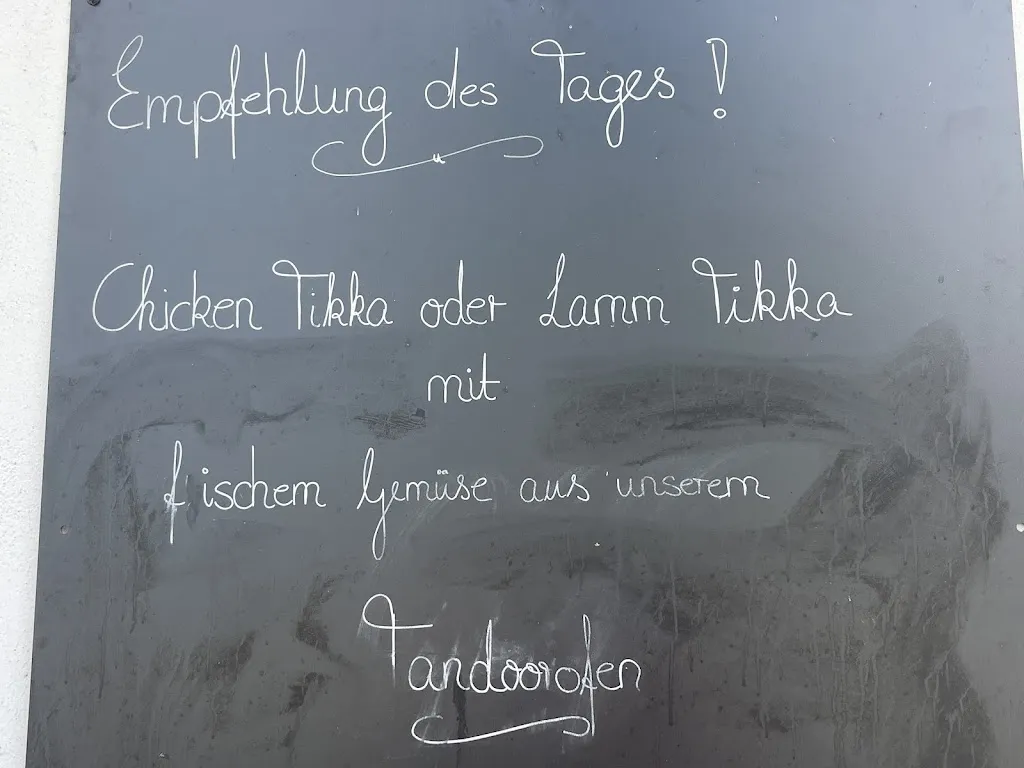 Empfehlung des Tages!
Chicken Tikka oder Lamm Tikka
mit
fischem Gemüse aus unserem
Tandoorofen